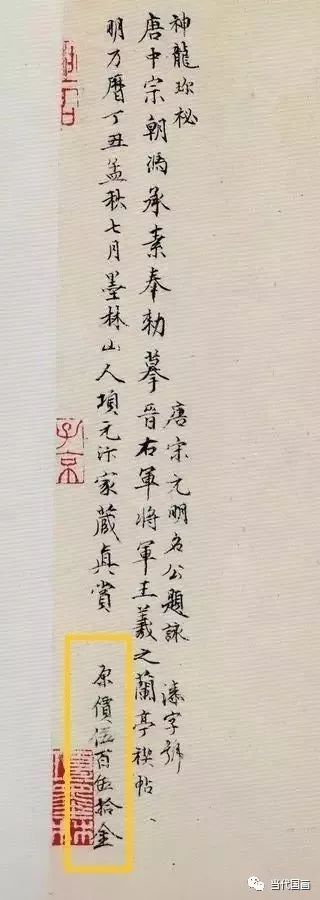 神龍珍秘 唐宋元明名公題詠 漆字號
唐中宗朝馮承素奉勅摹晉右軍將軍王羲之蘭亭禊帖
明万曆丁丑孟秋七月墨林山人項元汴家藏真賞 原價伍百伍拾金
子京
当代国画